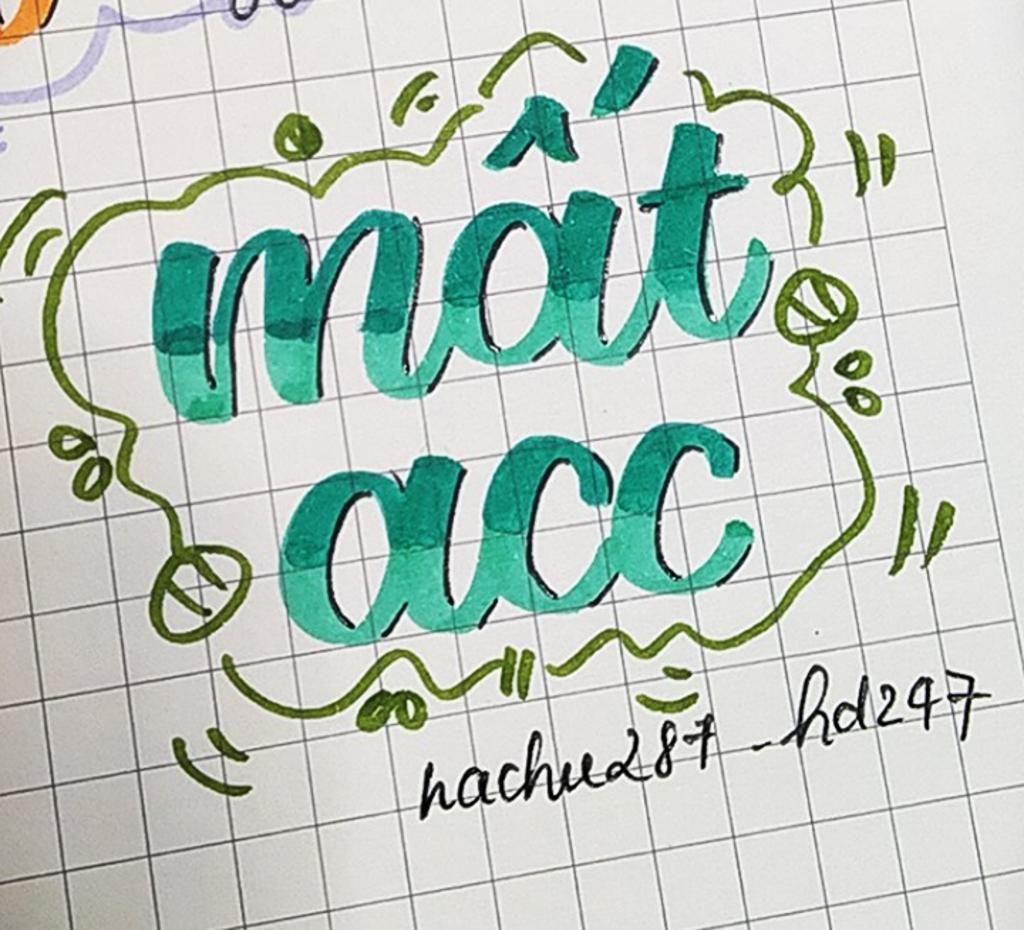 mất
acc
nachu287 _hd247